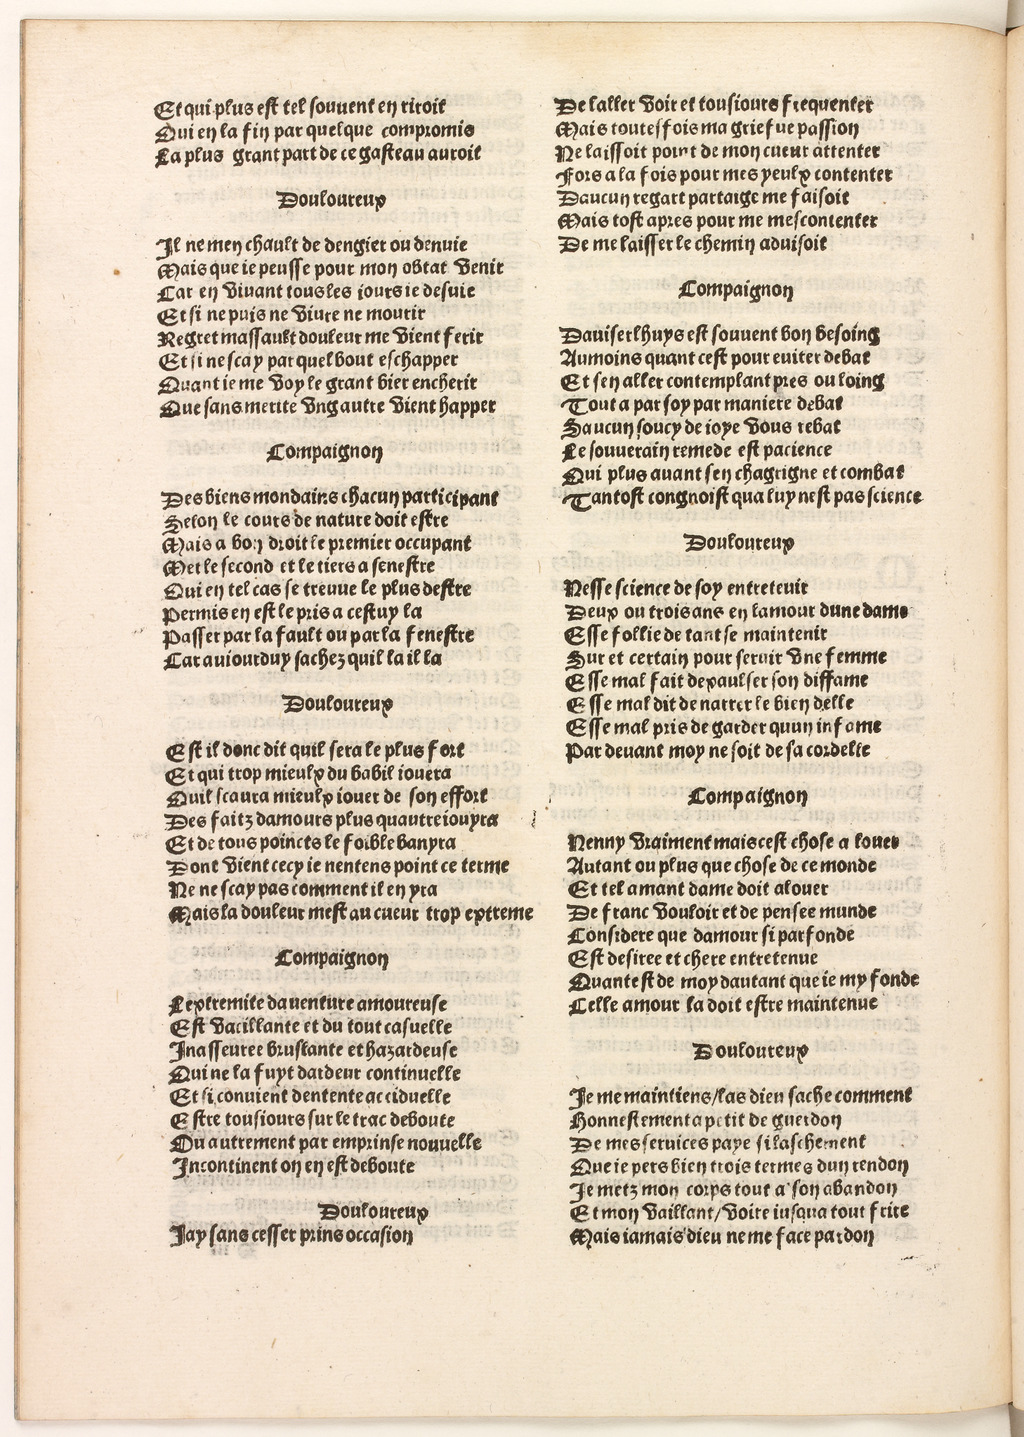 Et qui plus est tel souuent en riroit
Qui en la fin par quelque compromis
La plus grant part de ce gasteau auroit
Douloureux
Il ne men chault de dengier ou denuie
Mais que ie peusse pour mon obtat venir
Car en viuant tous les iours ie desuie
Et si ne puis ne viure ne mourir
Regret massault douleur me vient ferir
Et si ne scay par quel bout eschapper
Quant ie me voy le grant bier encherir
Que sans merite vng autre vient happer
Compaignon
Des biens mondains chacun participant
Selon le cours de nature doit estre
Mais a bon droit le premier occupant
Met le second et le tiers a senestre
Qui en tel cas se treuue le plus destre
Permis en est le pris a cestuy la
Passer par la fault ou par la fenestre
Car auiourduy sachez quil la il la
Douloureux
Est il donc dit quil sera le plus fort
Et qui trop mieulx du babil iouera
Quil scaura mieulx iouer de son effort
Des faitz damours plus quautre iouyra
Et de tous poincts le foible banyra
Dont vient cecy ie nentens point ce terme
Ne ne scay pas comment il en yra
Mais la douleur mest au cueur trop extreme
Compaignon
Lextremite dauenture amoureuse
Est vacillante et du tout casuelle
Inasseuree bruslante et hazardeuse
Qui ne la fuyt dardeur continuelle
Et si conuient dentente acciduelle
Estre tousiours sur le trac deboute
Ou autrement par emprinse nouuelle
Incontinent on en est deboute
Douloureux
Jay sans cesser prins occasion
De laller voir et tousiours frequenter
Mais toutesfois ma griefue passion
Ne laissoit point de mon cueur attenter
Fors a la fois pour mes yeulx contenter
Daucun regart partaige me faisoit
Mais tost apres pour me mescontenter
De me laisser le chemin aduisoit
Compaignon
Dauiser lhuys est souuent bon besoing
Aumoins quant cest pour euiter debat
Et sen aller contemplant pres ou loing
Tout a par soy par maniere debat
Saucun soucy de ioye vous rebat
Le souuerain remede est pacience
Qui plus auant sen chagrigne et combat
Tantost congnoist qua luy nest pas science
Douloureux
Nesse science de soy entretenir
Deux ou trois ans en lamour dune dame
Esse follie de tant se maintenir
Sur et certain pour seruir vne femme
Esse mal fait dexaulser son diffame
Esse mal dit de narrer le bien delle
Esse mal pris de garder quun infame
Par deuant moy ne soit de sa cordelle
Compaignon
Nenny vraiment mais cest chose a louer
Autant ou plus que chose de ce monde
Et tel amant dame doit alouer
De franc vouloir et de pensee munde
Considere que damour si parfonde
Est desiree et chere entretenue
Quant est de moy dautant que ie my fonde
Celle amour la doit estre maintenue
Douloureux
Je me maintiens/las dieu sache comment
Honnestement a petit de guerdon
De mes seruices paye si laschement
Que ie pers bien trois termes dun rendon
Je metz mon corps tout a son abandon
Et mon vaillant/voire iusqua tout frire
Mais iamais dieu ne me face pardon